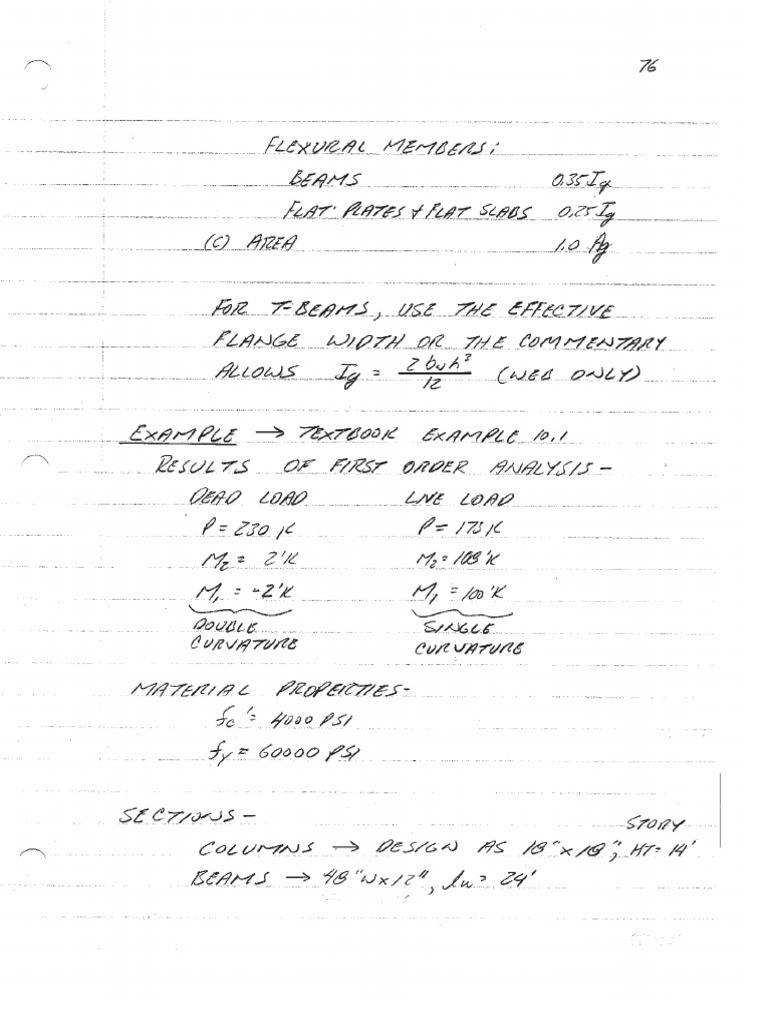 76
FLEXURAL MEMBERS:
BEAMS 0.35Ig
FLAT PLATES + FLAT SLABS 0.25Ig
(C) AREA 1.0 Ag
FOR T-BEAMS, USE THE EFFECTIVE
FLANGE WIDTH OR THE COMMENTARY
ALLOWS Ig = 2 bw h³ / 12 (WEB ONLY)
EXAMPLE → TEXTBOOK EXAMPLE 10.1
RESULTS OF FIRST ORDER ANALYSIS -
DEAD LOAD LIVE LOAD
P = 230 K P = 173 K
M2 = 2'K M2 = 108'K
M1 = -2'K M1 = 100'K
DOUBLE CURVATURE SINGLE CURVATURE
MATERIAL PROPERTIES -
fc' = 4000 PSI
fy = 60000 PSI
SECTIONS - STORY
COLUMNS → DESIGN AS 18" x 18", HT = 14'
BEAMS → 48"W x 12", lu = 24'